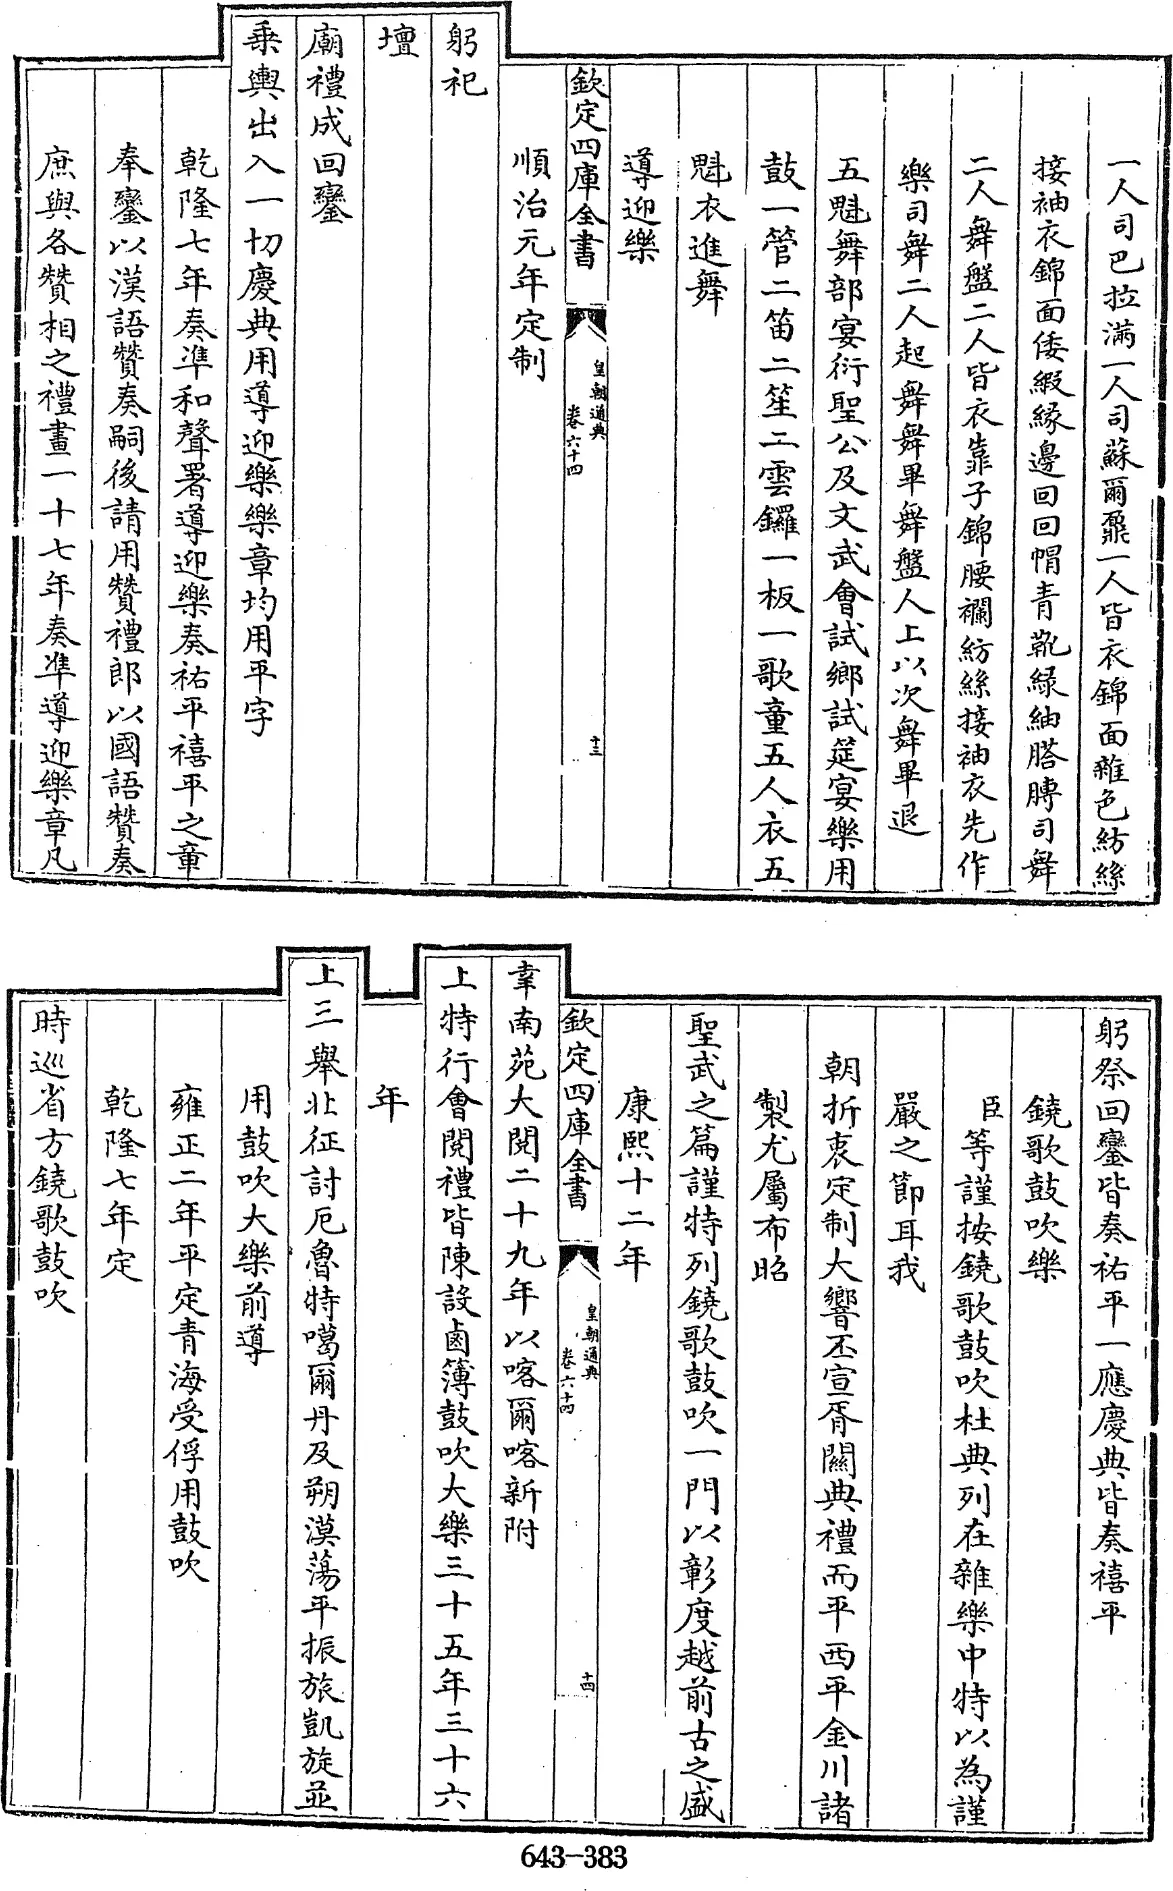 一人司巴拉滿一人司蘇爾鼐一人皆衣錦面雜色紡絲
接袖衣錦面倭緞緣邊回回帽青靴綠紬搭膊司舞
二人舞盤二人皆衣靠子錦腰襴紡絲接袖衣先作
樂司舞二人起舞舞畢舞盤人上以次舞畢退
五魁舞部宴衍聖公及文武會試鄉試筵宴樂用
鼓一管二笛二笙二雲鑼一板一歌童五人衣五
魁衣進舞
導迎樂
欽定四庫全書
皇朝通典
卷六十四
十三
順治元年定制
躬祀
壇
廟禮成回鑾
乗輿出入一切慶典用導迎樂樂章均用平字
乾隆七年奏準和聲署導迎樂奏祐平禧平之章
奉鑾以漢語贊奏嗣後請用贊禮郎以國語贊奏
庶與各贊相之禮畫一十七年奏準導迎樂章凡
躬祭回鑾皆奏祐平一應慶典皆奏禧平
鐃歌鼓吹樂
臣等謹按鐃歌鼓吹杜典列在雜樂中特以為謹
嚴之節耳我
朝折衷定制大響丕宣胥關典禮而平西平金川諸
製尤屬布昭
聖武之篇謹特列鐃歌鼓吹一門以彰度越前古之盛
康熙十二年
欽定四庫全書
皇朝通典
卷六十四
十四
幸南苑大閱二十九年以喀爾喀新附
上特行會閱禮皆陳設鹵簿鼓吹大樂三十五年三十六
年
上三舉北征討厄魯特噶爾丹及朔漠蕩平振旅凱旋並
用鼓吹大樂前導
雍正二年平定青海受俘用鼓吹
乾隆七年定
時巡省方鐃歌鼓吹
643-383